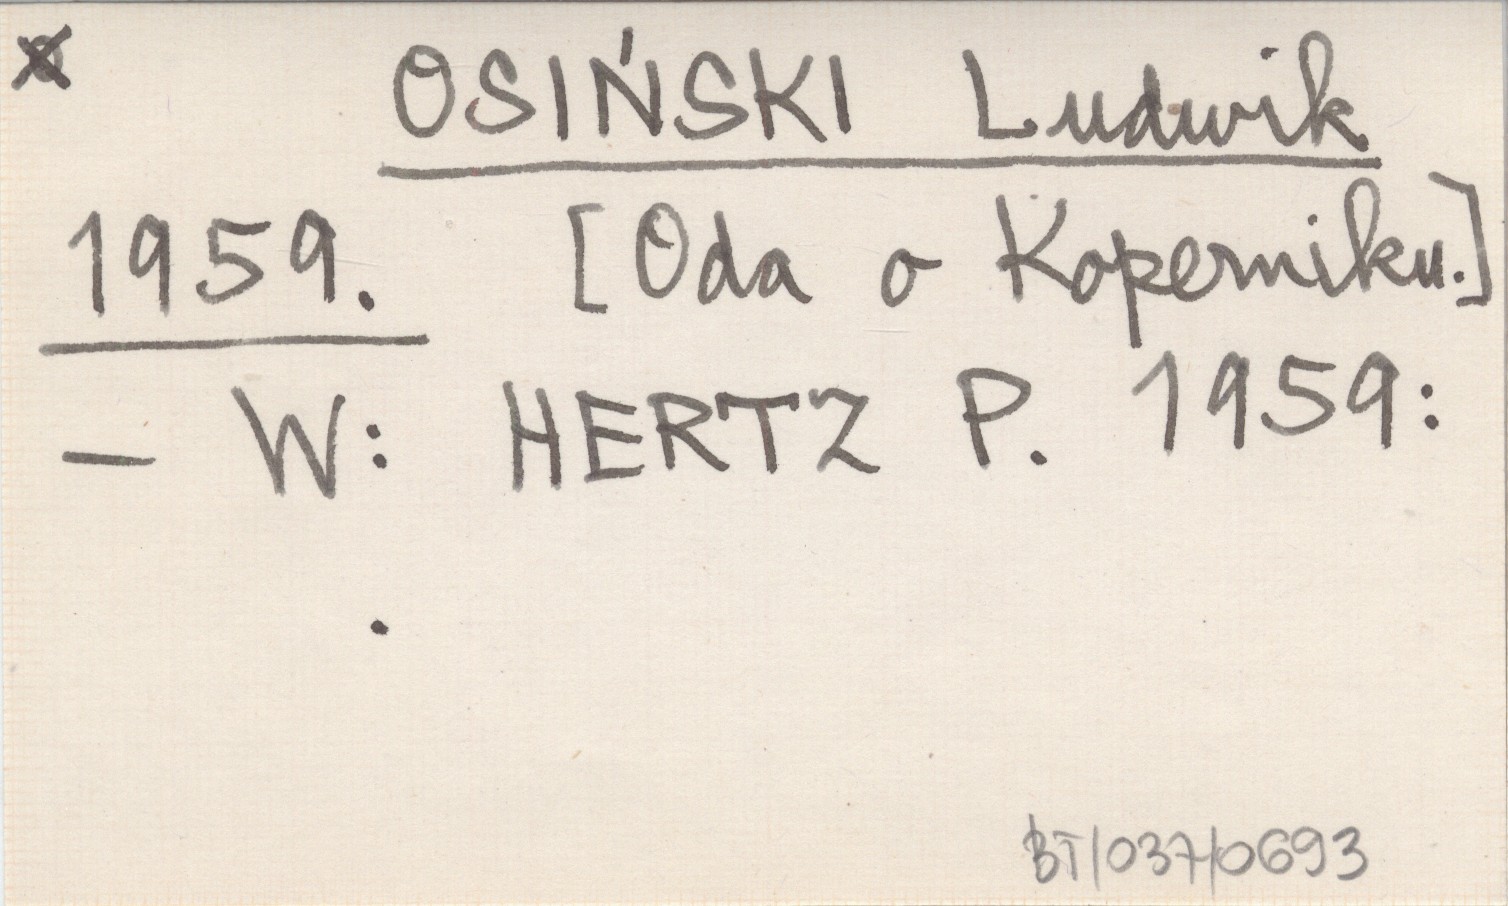 OSIŃSKI Ludwik
1959. [Oda o Koperniku.]
— W: HERTZ P. 1959:
.
BT/037/0693